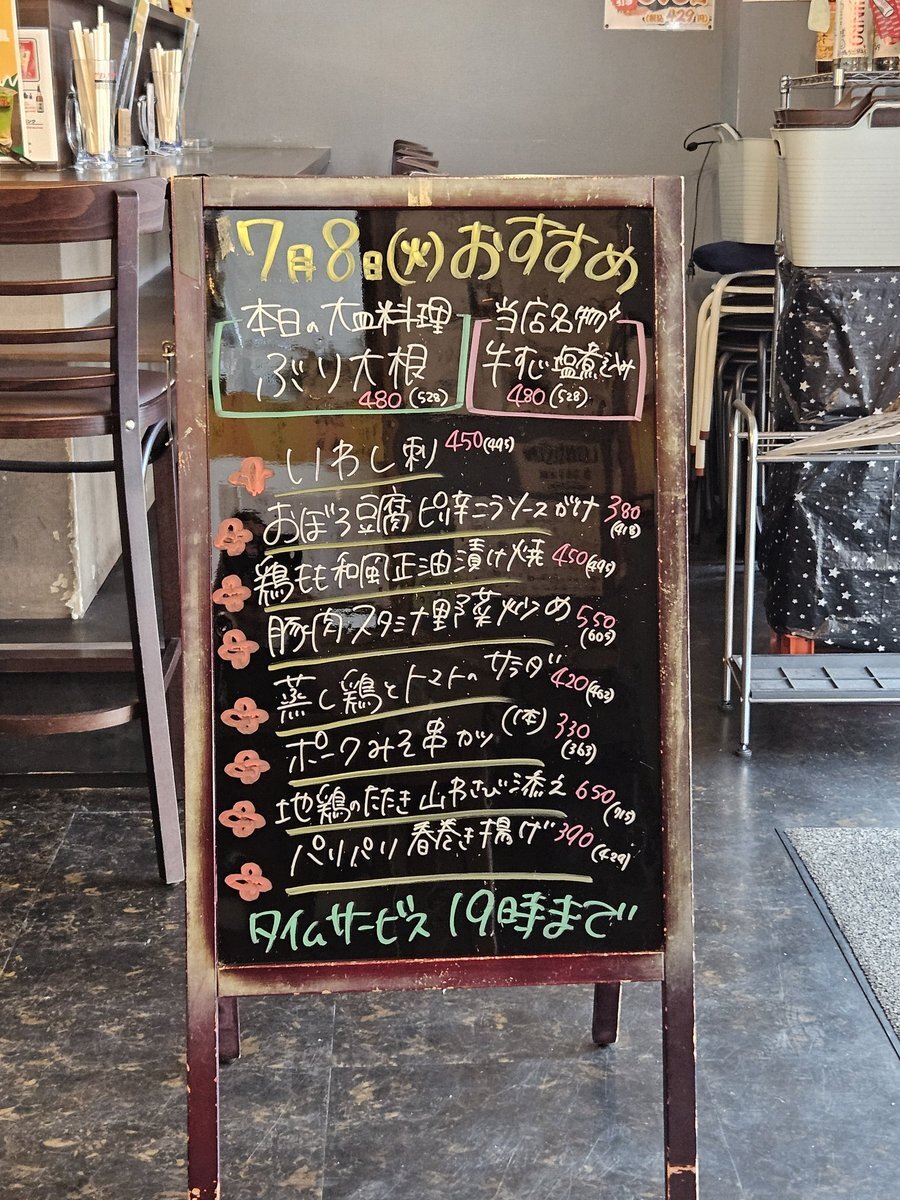 7月8日(火)おすすめ
本日の大皿料理
ぶり大根
480(528)
当店名物
牛すじ塩煮込み
480(528)
いわし刺 450(495)
おぼろ豆腐ピリ辛ニラソースがけ 380(418)
鶏もも和風正油漬け焼 450(495)
豚肉スタミナ野菜炒め 550(605)
蒸し鶏とトマトのサラダ 420(462)
ポークみそ串カツ(1本) 330(363)
地鶏のたたき山わさび添え 650(715)
パリパリ春巻き揚げ 390(429)
タイムサービス 19時まで